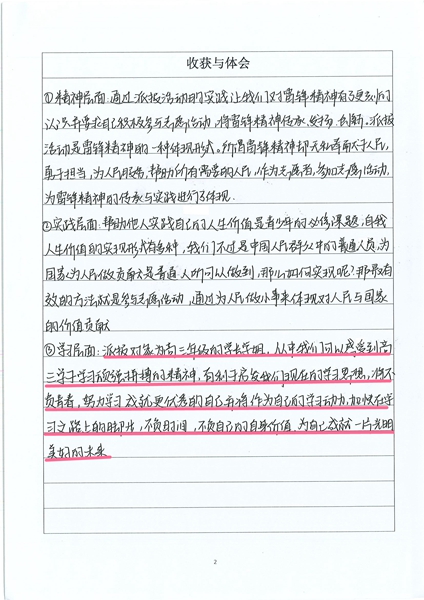 收获与体会
①精神层面：通过派报活动的实践让我们对雷锋精神有了更深刻的
认识，并要求自己积极参与志愿活动，将雷锋精神传承、发扬、创新。派报
活动是雷锋精神的一种体现形式。所谓雷锋精神即无私奉献于人民，
勇于担当，为人民服务，帮助所有需要的人民，作为志愿者，参加志愿活动，
为雷锋精神的传承与实践进行了体现.
②实践层面：帮助他人实践自己的人生价值是青少年的必修课题，自我
人生价值的实现形式有多种，我们不过是中国人民群众中的普通人员，为
国家为人民做贡献是普通人所可以做到，那么如何实现呢？那最有
效的方法就是参与志愿活动，通过为人民做小事来体现对人民与国家
的价值贡献
③学习层面：派报对象为高三年级的学长学姐，从中我们可以感受到高
三学子学习顽强拼搏的精神，有利于启发我们现在的学习思想，将不
负青春，努力学习成就更优秀的自己并将作为自己的学习动力，加快在学
习之路上的脚步，不负时间，不负自己的自身价值，为自己成就一片光明
美好的未来
2